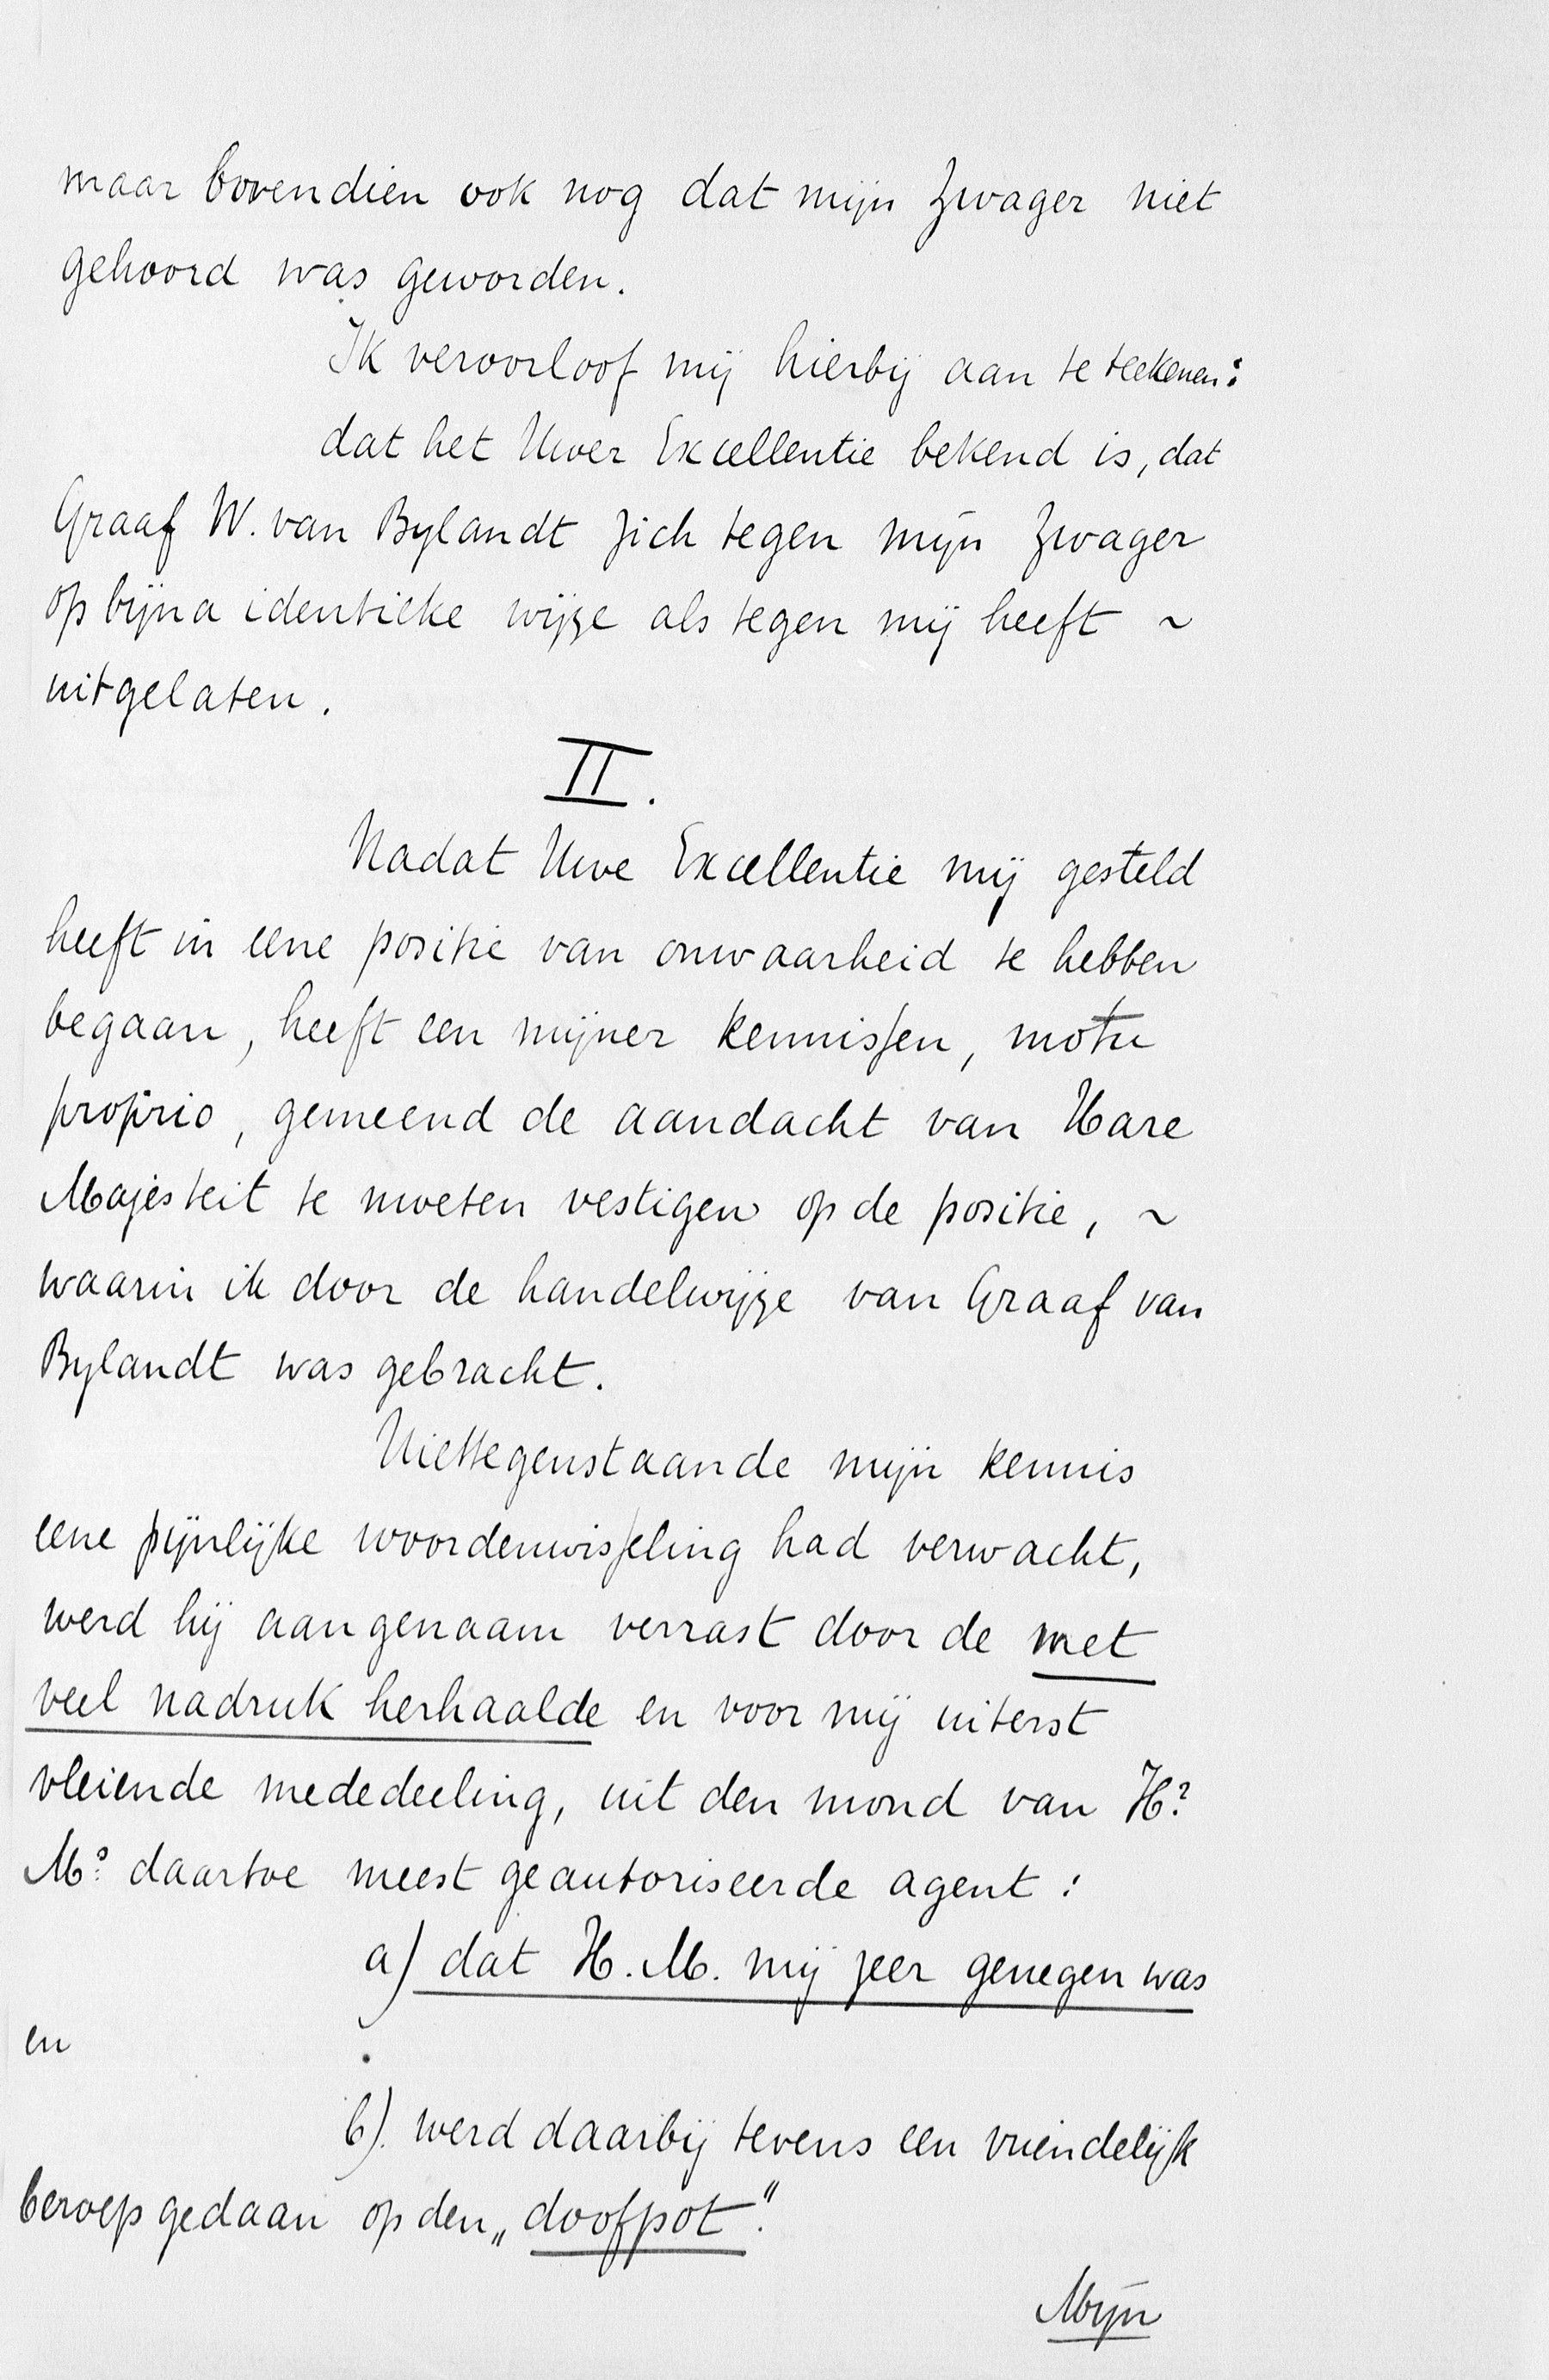 maar bovendien ook nog dat mijn zwager niet
gehoord was geworden.
Ik veroorloof mij hierbij aan te teekenen:
dat het Uwer Excellentie bekend is, dat
Graaf W. van Bylandt zich tegen mijn zwager
op bijna identieke wijze als tegen mij heeft ~
uitgelaten.
II.
Nadat Uwe Excellentie mij gesteld
heeft in eene positie van onwaarheid te hebben
begaan, heeft een mijner kennissen, motu
proprio, gemeend de aandacht van Hare
Majesteit te moeten vestigen op de positie, ~
waarin ik door de handelwijze van Graaf van
Bylandt was gebracht.
Niettegenstaande mijn kennis
eene pijnlijke woordenwisseling had verwacht,
werd hij aangenaam verrast door de met
veel nadruk herhaalde en voor mij uiterst
vleiende mededeeling, uit den mond van H?
M? daartoe meest geautoriseerde agent:
a) dat H. M. mij zeer genegen was
en
b). werd daarbij tevens een vriendelijk
beroep gedaan op den „doofpot".
Mijn